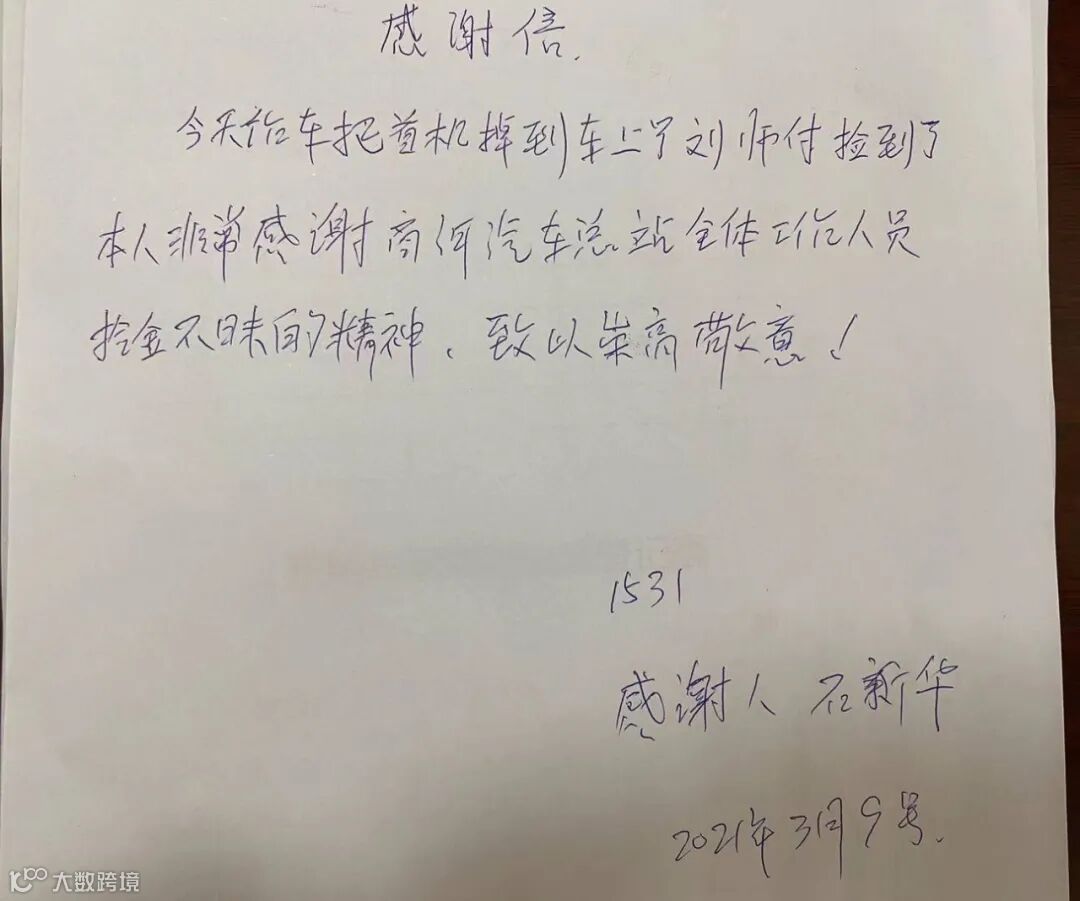 感谢信.
今天坐车把首机掉到车上了刘师付捡到了
本人非常感谢商河汽车总站全体工作人员
拾金不昧的精神、致以崇高敬意!
1531
感谢人 石新华
2021年3月9号.
大数跨境